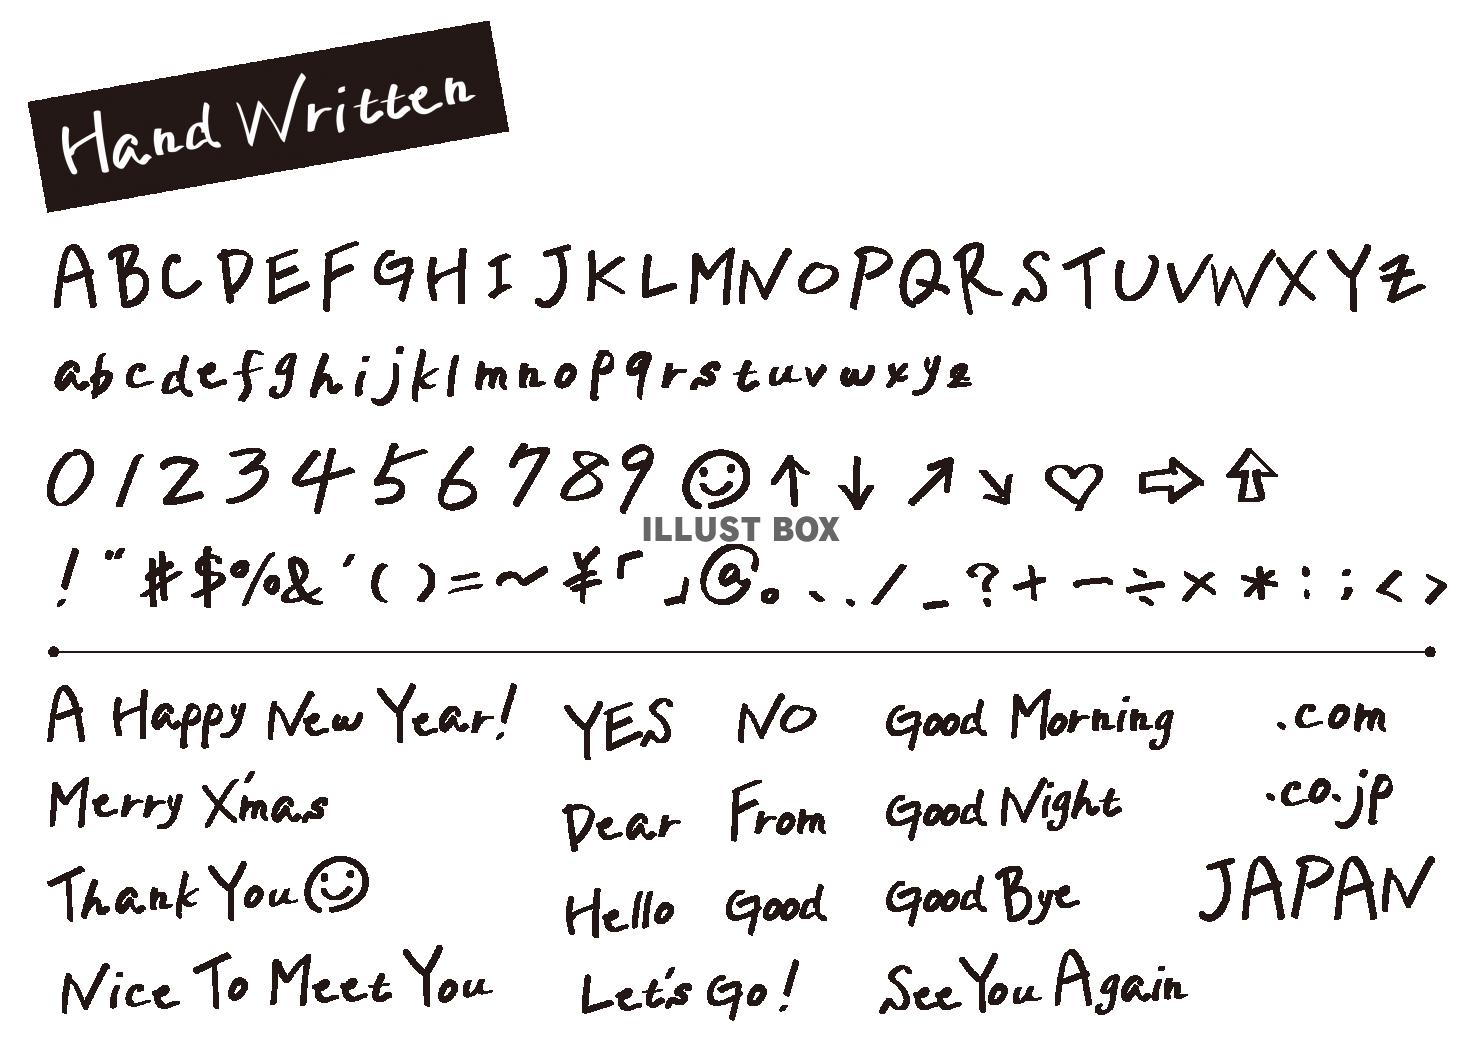 Hand Written
ABCDEFGHIJKLMNOPQRSTUVWXYZ
abcdefghijklmnopqrstuvwxyz
0123456789☺↑↓↗↘♡⇨⇧
ILLUST BOX
!"#$%&'()=~¥「」@。、./_?+-÷×*:;<>
A Happy New Year! YES NO Good Morning .com
Merry X'mas Dear From Good Night .co.jp
Thank You☺ Hello Good Good Bye JAPAN
Nice To Meet You Let's Go! See You Again